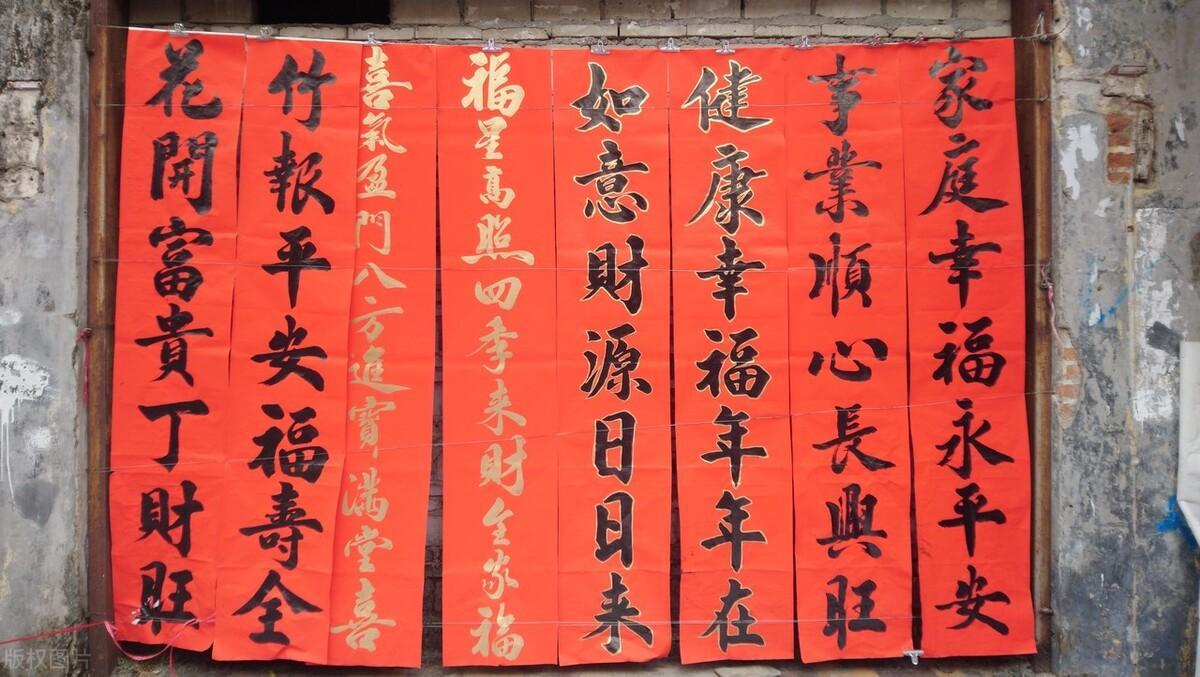 家庭幸福永平安
事業順心長興旺
健康幸福年年在
如意財源日日来
福星高照四季来財全家福
喜氣盈門八方進寶滿堂喜
竹報平安福壽全
花開富貴丁財旺
版权图片